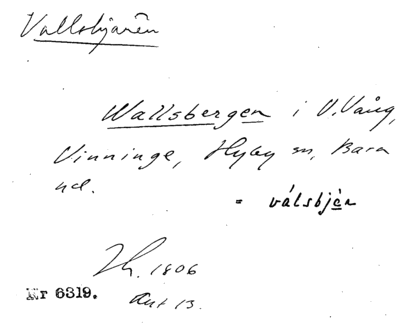 Vallsbjarén
Wallsbergen i V. Vång,
Vinninge, Hyby sn, Bara
hd.
= válsbjèn
Zh. 1806
Nr 6319. Akt 13.